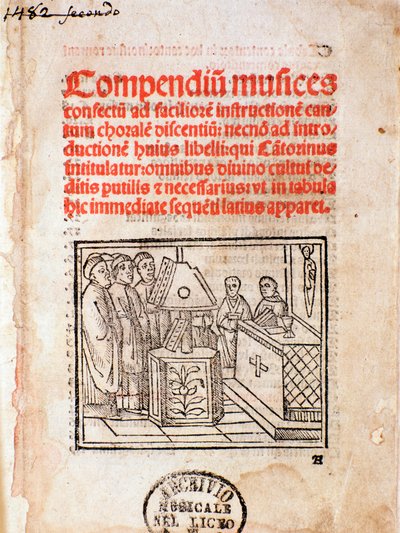 1482 secondo
Compendiū musices
confectū ad faciliorē instructionē can-
tum choralē discentiū: necnō ad intro-
ductionē huius libelli: qui Cātorinus
intitulatur: omnibus diuino cultui de-
ditis putilis ⁊ necessarius: vt in tabula
hic immediate sequēti latius apparet.
A
ARCHIVIO
MUSICALE
NEL LICEO